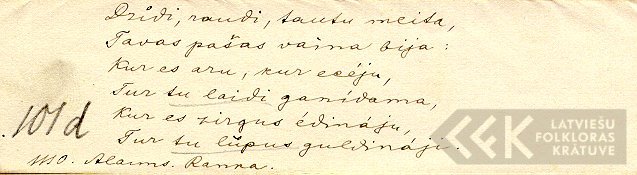 Dzīdi, raudi, tautu meita,
Tavas pašas vaina bija:
Kur es aru, kur ecēju,
Tur tu laidi ganīdama,
Kur es zirgus ēdināju,
Tur tu lūpus guldināji.
101d
1110. Alaims. Ranka.
LATVIEŠU
FOLKLORAS
KRĀTUVE